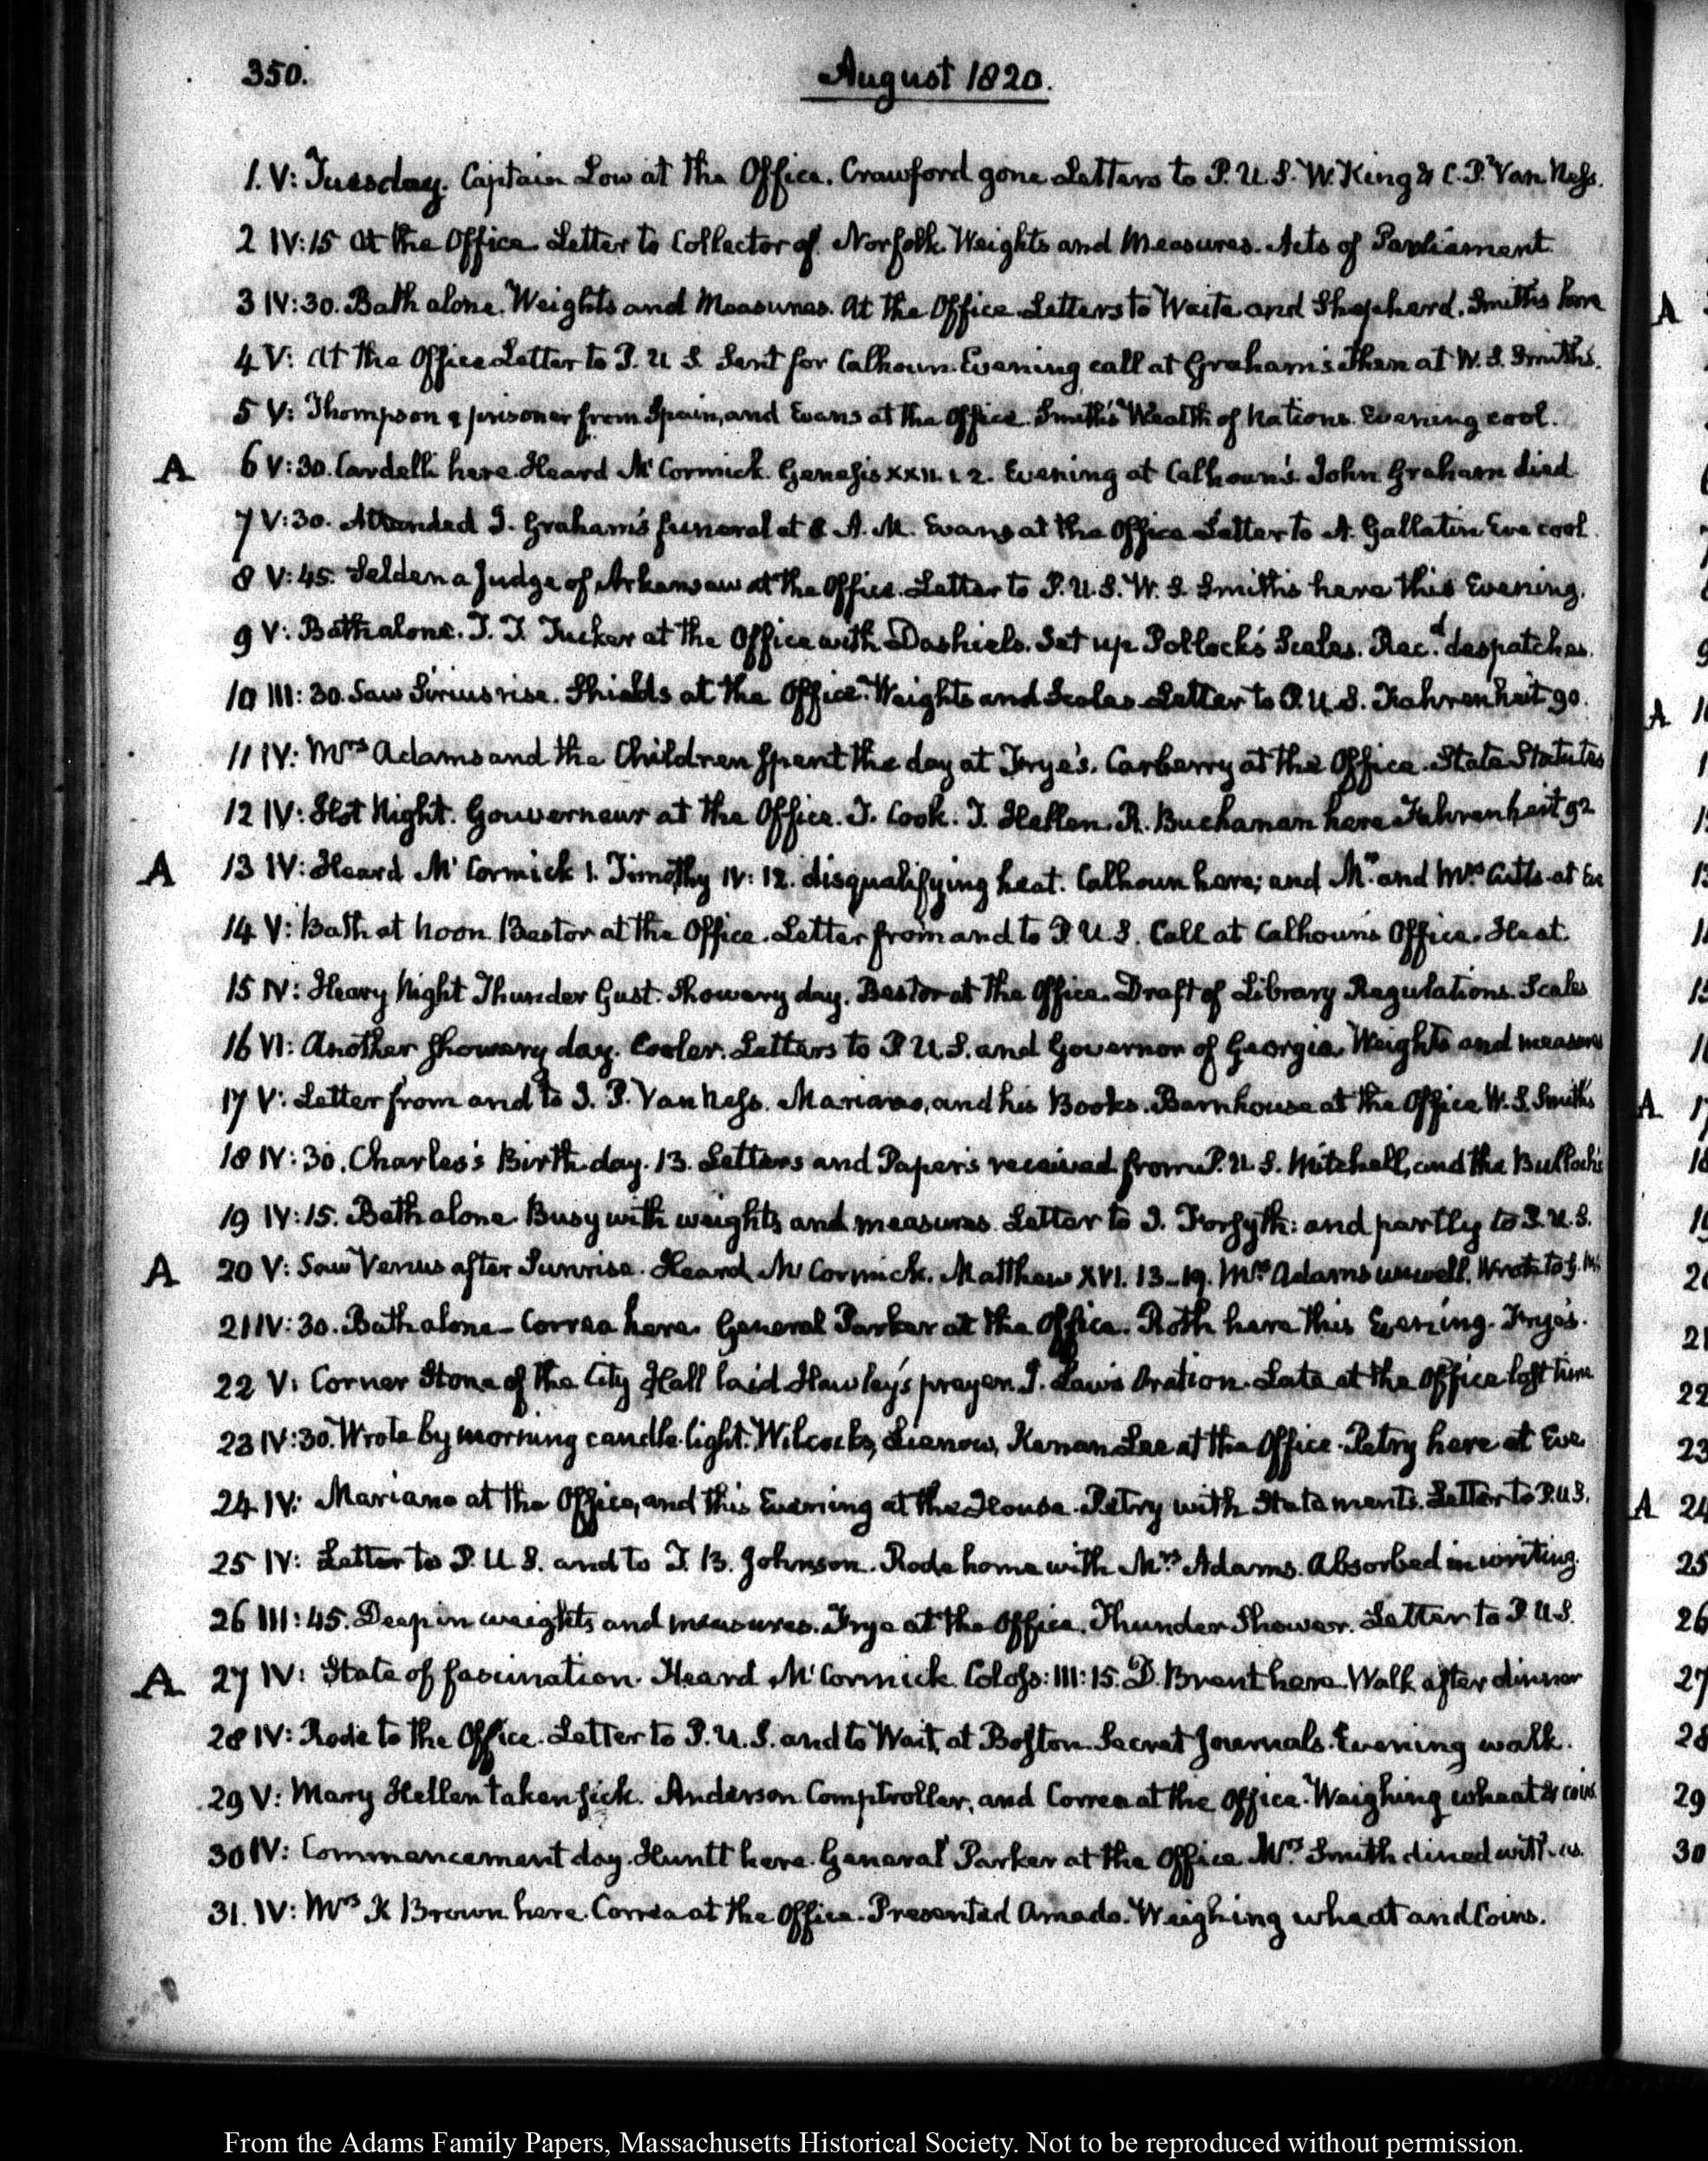 350.
August 1820.
1. V: Tuesday. Captain Low at the Office. Crawford gone Letters to P. U. S. W. King & C. P. Van Ness.
2 IV:15 At the Office Letter to Collector of Norfolk. Weights and Measures. Acts of Parliament
3 IV:30. Bath alone. Weights and Measures. At the Office Letters to Waite and Shepherd. Smiths here
4 V: At the Office Letter to P. U S. Sent for Calhoun. Evening call at Graham's then at W. S. Smith's.
5 V: Thompson a prisoner from Spain, and Evans at the Office. Smith's Wealth of Nations. Evening cool.
A 6 V:30. Cardelli here. Heard McCormick. Genesis XXII. 1. 2. Evening at Calhoun's. John Graham died
7 V:30. Attended J. Graham's funeral at 8 A. M. Evans at the Office Letter to A. Gallatin Eve cool.
8 V:45. Selden a Judge of Arkansaw at the Office. Letter to P. U. S. W. S. Smith's here this Evening.
9 V: Bath alone. T. T. Tucker at the Office with Dashiels. Set up Pollock's Scales. Recd. despatches.
10 III:30. Saw Sirius rise. Shields at the Office. Weights and Scales Letter to P. U. S. Fahrenheit 90.
11 IV: Mrs Adams and the Children spent the day at Frye's. Carberry at the Office. State Statutes
12 IV: Hot Night. Gouverneur at the Office. J. Cook. J. Hellen. R. Buchanan here Fahrenheit 92
A 13 IV: Heard McCormick 1. Timothy IV: 12. disqualifying heat. Calhoun here; and Mr. and Mrs Cutts at Eve
14 V: Bath at noon. Bestor at the Office. Letter from and to P. U. S. Call at Calhoun's Office. Heat.
15 IV: Heavy Night Thunder Gust. Showery day. Bestor at the Office. Draft of Library Regulations. Scales
16 VI: Another showery day. Cooler. Letters to P. U. S. and Governor of Georgia Weights and measures
17 V: Letter from and to J. P. Van Ness. Mariano, and his Books. Barnhouse at the Office W. S. Smiths
18 IV:30. Charles's Birth day. 13. Letters and Papers received from P. U. S. Mitchell, and the Bullochs
19 IV:15. Bath alone. Busy with weights and measures. Letter to J. Forsyth: and partly to P. U. S.
A 20 V: Saw Venus after Sunrise. Heard McCormick. Matthew XVI. 13–19. Mrs Adams unwell. Wrote to
21 IV:30. Bath alone – Correa here. General Parker at the Office. Roth here this Evening. Frye's.
22 V: Corner Stone of the City Hall laid Hawley's prayer. J. Law's Oration. Late at the Office lost time
23 IV:30. Wrote by morning candle light. Wilcocks, Lienow, Kenan Lee at the Office. Petry here at Eve
24 IV: Mariano at the Office, and this Evening at the House. Petry with Statements. Letter to P. U S.
25 IV: Letter to P. U S. and to J. B. Johnson. Rode home with Mrs Adams. Absorbed in writing.
26 III:45. Deep in weights and measures. Frye at the Office. Thunder Shower. Letter to P. U S.
A 27 IV: State of fascination. Heard McCormick. Coloss: III: 15. D. Brent here. Walk after dinner
28 IV: Rode to the Office. Letter to P. U. S. and to Wait, at Boston. Secret Journals. Evening walk.
29 V: Mary Hellen taken sick. Anderson Comptroller, and Correa at the Office. Weighing wheat & coins
30 IV: Commencement day. Huntt here. General Parker at the Office. Mrs Smith dined with us.
31. IV: Mrs K Brown here. Correa at the Office. Presented Amado. Weighing wheat and Coins.
From the Adams Family Papers, Massachusetts Historical Society. Not to be reproduced without permission.